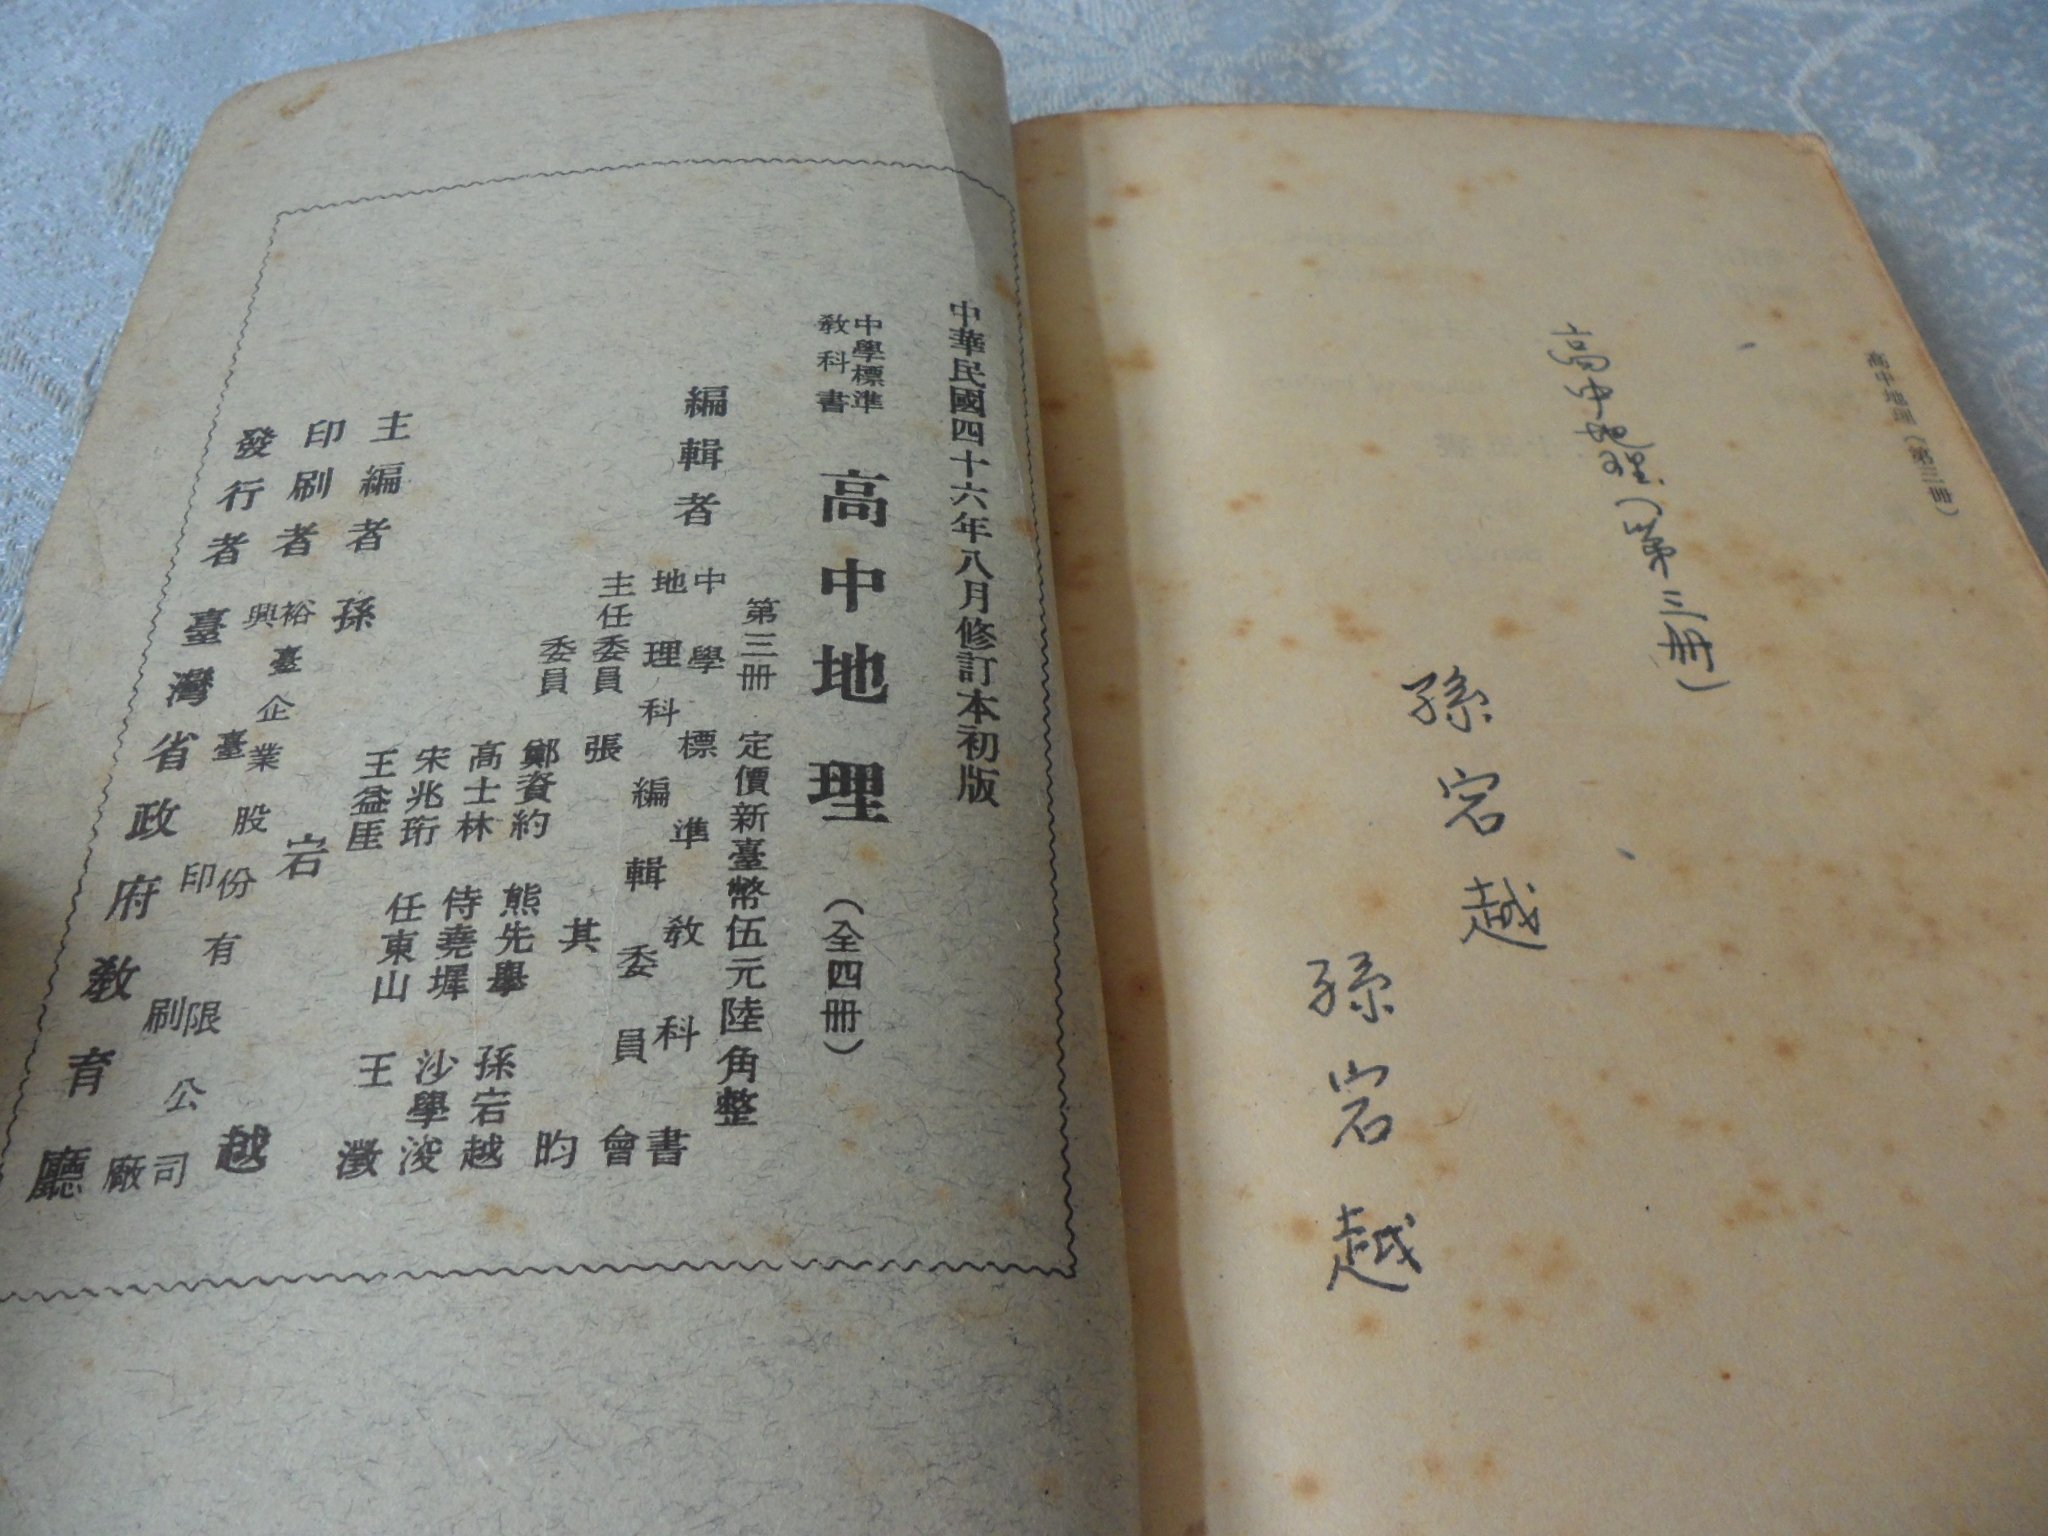 高中地理（第三冊）
高中地理（第三冊）
孫宕越
孫宕越
中華民國四十六年八月修訂本初版
中學標準
教科書
高中地理（全四冊）
第三冊 定價新臺幣伍元陸角整
編輯者
中學標準教科書
地理科編輯委員會
主任委員 張其昀
委員 鄭資約 熊先舉 孫宕越
高士林 侍堯墀 沙學浚
宋兆珩 任東山 王澂
王益厓
主編者 孫宕越
印刷者
裕臺企業股份有限公司
興臺印刷廠
發行者 臺灣省政府教育廳